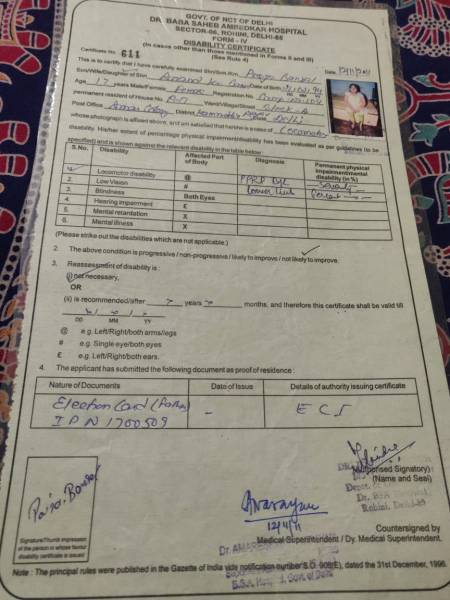 GOVT. OF NCT OF DELHI
DR. BABA SAHEB AMBEDKAR HOSPITAL
SECTOR-06, ROHINI, DELHI-85
FORM - IV
DISABILITY CERTIFICATE
(In cases other than those mentioned in Forms II and III)
(See Rule 4)
Certificate No. 611 Date:
This is to certify that I have carefully examined Shri/Smt./Km.
Son/Wife/Daughter of Shri Anand
Age 17 years Male/Female Registration No.
permanent resident of House No. Ward/Village/Street Block-A
Post Office District Delhi
whose photograph is affixed above, and am satisfied that he/she is a case of Locomotor
disability. His/her extent of percentage physical impairment/disability has been evaluated as per guidelines (to be
specified) and is shown against the relevant disability in the table below :
S.No. Disability Affected Part of Body Diagnosis Permanent physical impairment/mental disability (in %)
1. Locomotor disability @ PPRP B/L Lower Limb Seventy Percent
2. Low Vision #
3. Blindness Both Eyes
4. Hearing impairment £
5. Mental retardation X
6. Mental illness X
(Please strike out the disabilities which are not applicable.)
2. The above condition is progressive / non-progressive / likely to improve / not likely to improve.
3. Reassessment of disability is :
(i) not necessary.
OR
(ii) is recommended/after years months, and therefore this certificate shall be valid till
DD MM YY
@ e.g. Left/Right/both arms/legs
# e.g. Single eye/both eyes
£ e.g. Left/Right/both ears.
4. The applicant has submitted the following document as proof of residence :
Nature of Documents Date of Issue Details of authority issuing certificate
Election Card (Father) - E C I
IPN1700509
(Authorised Signatory)
(Name and Seal)
Rohini, Delhi-85
12/4/11
Countersigned by
Medical Superintendent / Dy. Medical Superintendent.
Signature/Thumb impression
of the person in whose favour
disability certificate is issued
Note : The principal rules were published in the Gazette of India vide notification number S.O. 908(E), dated the 31st December, 1996.